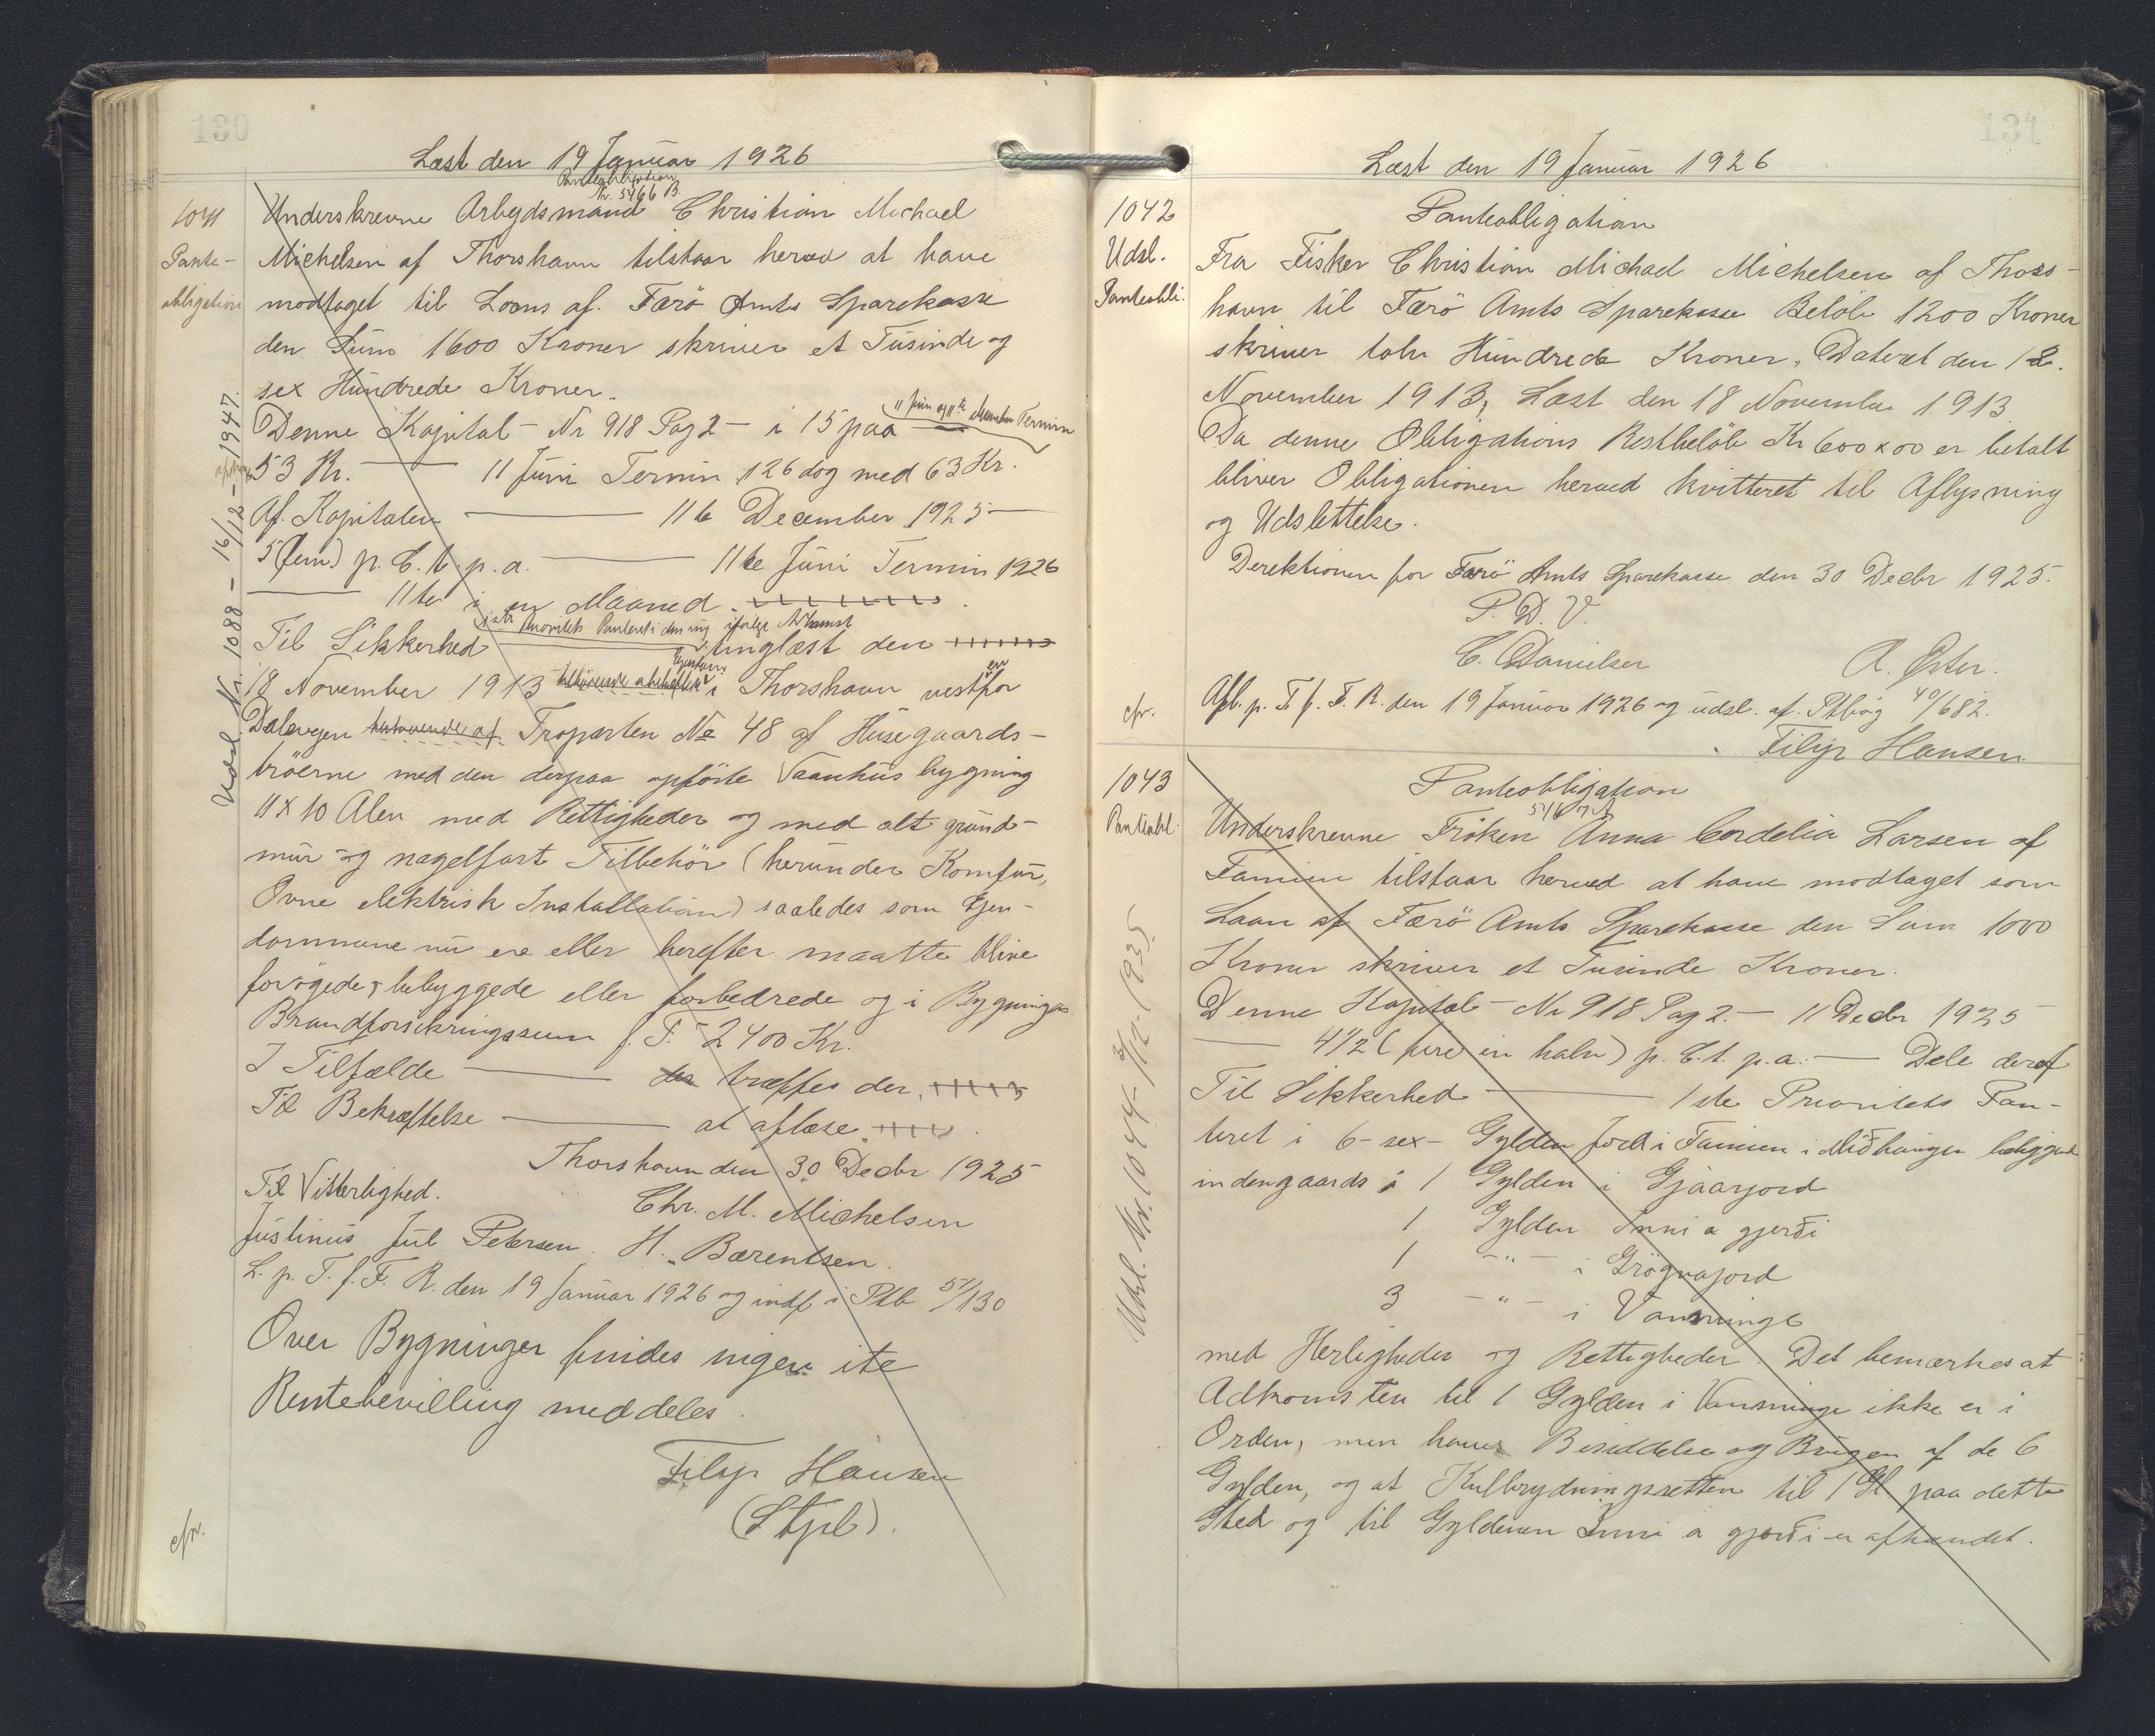 130
Læst den 19 Januar 1926
Panteobligation
Nr. 5466 B.
1041
Pante-
obligation
Underskrevne Arbejdsmand Christian Michael
Michelsen af Thorshavn tilstaar herved at have
modtaget til Loans af. Færö Amts Sparekasse
den Sum 1600 Kroner skriver et Tusinde og
sex Hundrede Kroner.
Denne Kapital - Nr 918 Pag 2 - i 15 paa
53 Kr. — 11 Juni Termin 126 dog med 63 Kr.
Af. Kapitalen — 11te December 1925 —
5 (fem) p. C. t. p. a. — 11te Juni Termin 1926
— 11te i en Maaned.
1ste Prioritets Panteret i den mig ifølge Adkomst
Til Sikkerhed — tinglæst den
18 November 1913 tilhörende Ejendom i Thorshavn vestfor
Dalavegen bestaaende af Traparten No 48 af Húsegaards-
tröerne med den derpaa opförte Vaanhús bygning
11 x 10 Alen med Rettigheder og med alt grund-
mur og nagelfast Tilbehör (herunder Komfur,
Ovne elektrisk Installation) saaledes som Ejen-
dommene nu ere eller herefter maatte blive
forögede, bebyggede eller forbedrede og i Bygningens
Brandforsikringssum f. T. 2400 Kr.
I Tilfælde — der træffes der,
Til Bekræftelse — at aflæse
Thorshavn den 30 Decbr 1925
Til Vitterlighed.
Chr. M. Michelsen
Justinus Jul Petersen. H. Bærentsen.
L. p. T. f. F. R. den 19 Januar 1926 og indf. i Ptb 51/130
Over Bygninger findes ingen ite
Rentebevilling meddeles.
Filip Hansen
(Stpl).
cfr.
Udsl. Nr. 1088 - 16/12 - 1947.
131
Læst den 19 Januar 1926
1042
Udsl.
Panteobli.
Panteobligation
Fra Fisker Christian Michael Michelsen af Thors-
havn til Færö Amts Sparekasse Belöb 1200 Kroner
skriver tolv Hundrede Kroner. Dateret den 12.
November 1913, Læst den 18 November 1913
Da denne Obligations Restbelöb Kr 600 x 00 er betalt
bliver Obligationen herved kvitteret til Aflysning
og Udslettelse.
Derektionen for Færö Amts Sparekasse den 30 Decbr 1925.
P. D. V.
C. Danielsen A. Öster.
cfr.
Afl. p. T. f. F. R. den 19 Januar 1926 og udsl. af. Ptbog 40/682.
Filip Hansen
1043
Panteobl.
Panteobligation
5467 A
Underskrevne Fröken Anna Cordelia Larsen af
Famien tilstaar herved at have modtaget som
Laan af Færö Amts Sparekasse den Sum 1000
Kroner skriver et Tusinde Kroner.
Denne Kapital - Nr 918 Pag 2. - 11 Decbr 1925
— 4 1/2 (fire en halv) p. C. t. p. a. — Dele deraf
Til Sikkerhed — 1ste Prioritets Pan-
teret i 6 - sex - Gylden Jord i Famien i Miðhaugen beliggende
indengaards i 1 Gylden i Gjáarjord
1 Gylden Inni a gjerði
1 -"- i Grögvajord
3 -"- i Vanninge
med Herligheder og Rettigheder. Det bemærkes at
Adkomsten til 1 Gylden i Vanninge ikke er i
Orden, men haves Besiddelse og Brugen af de 6
Gylden, og at Kulbrydningsretten til 1 Gl. paa dette
Sted og til Gylderen Inni a gjerði er afhændet.
Udsl. Nr. 1044 - 3/12 - 1935